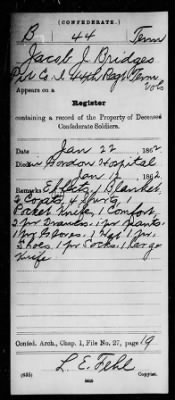 (CONFEDERATE.)
B 44 Tenn
Jacob J Bridges
Pvt Co. I 44th Regt Tenn
Vols
Appears on a
Register
containing a record of the Property of Deceased
Confederate Soldiers.
Date Jan 22 1862
Died in Gordon Hospital
Jan 12 1862
Remarks Effects, 1 Blanket,
2 Coats, 4 Shirts, 1
Pocket Knife, 1 Comfort,
2 pr Drawers, 1 pr Pants,
1 pr Gloves, 1 Hat, 1 pr
Shoes, 1 pr Socks, 1 Large
Knife
Confed. Arch., Chap. 1, File No. 27, page 19
L. E. Fehl
(635) Copyist.